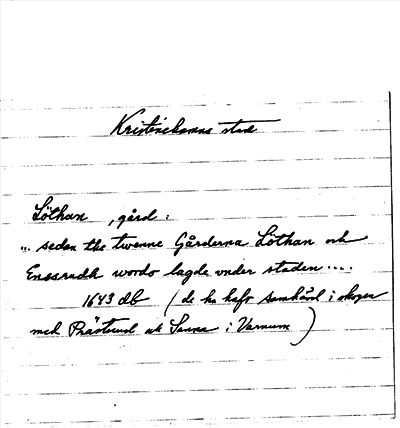 Kristinehamns stad
Löthan , gård :
"... sedan the twenne Gårderna Löthan och
Enssrudh wordo lagde under staden ....
1643 db (de ha haft samhärd i skogen
med Prästerud och Sanna i Varnum)